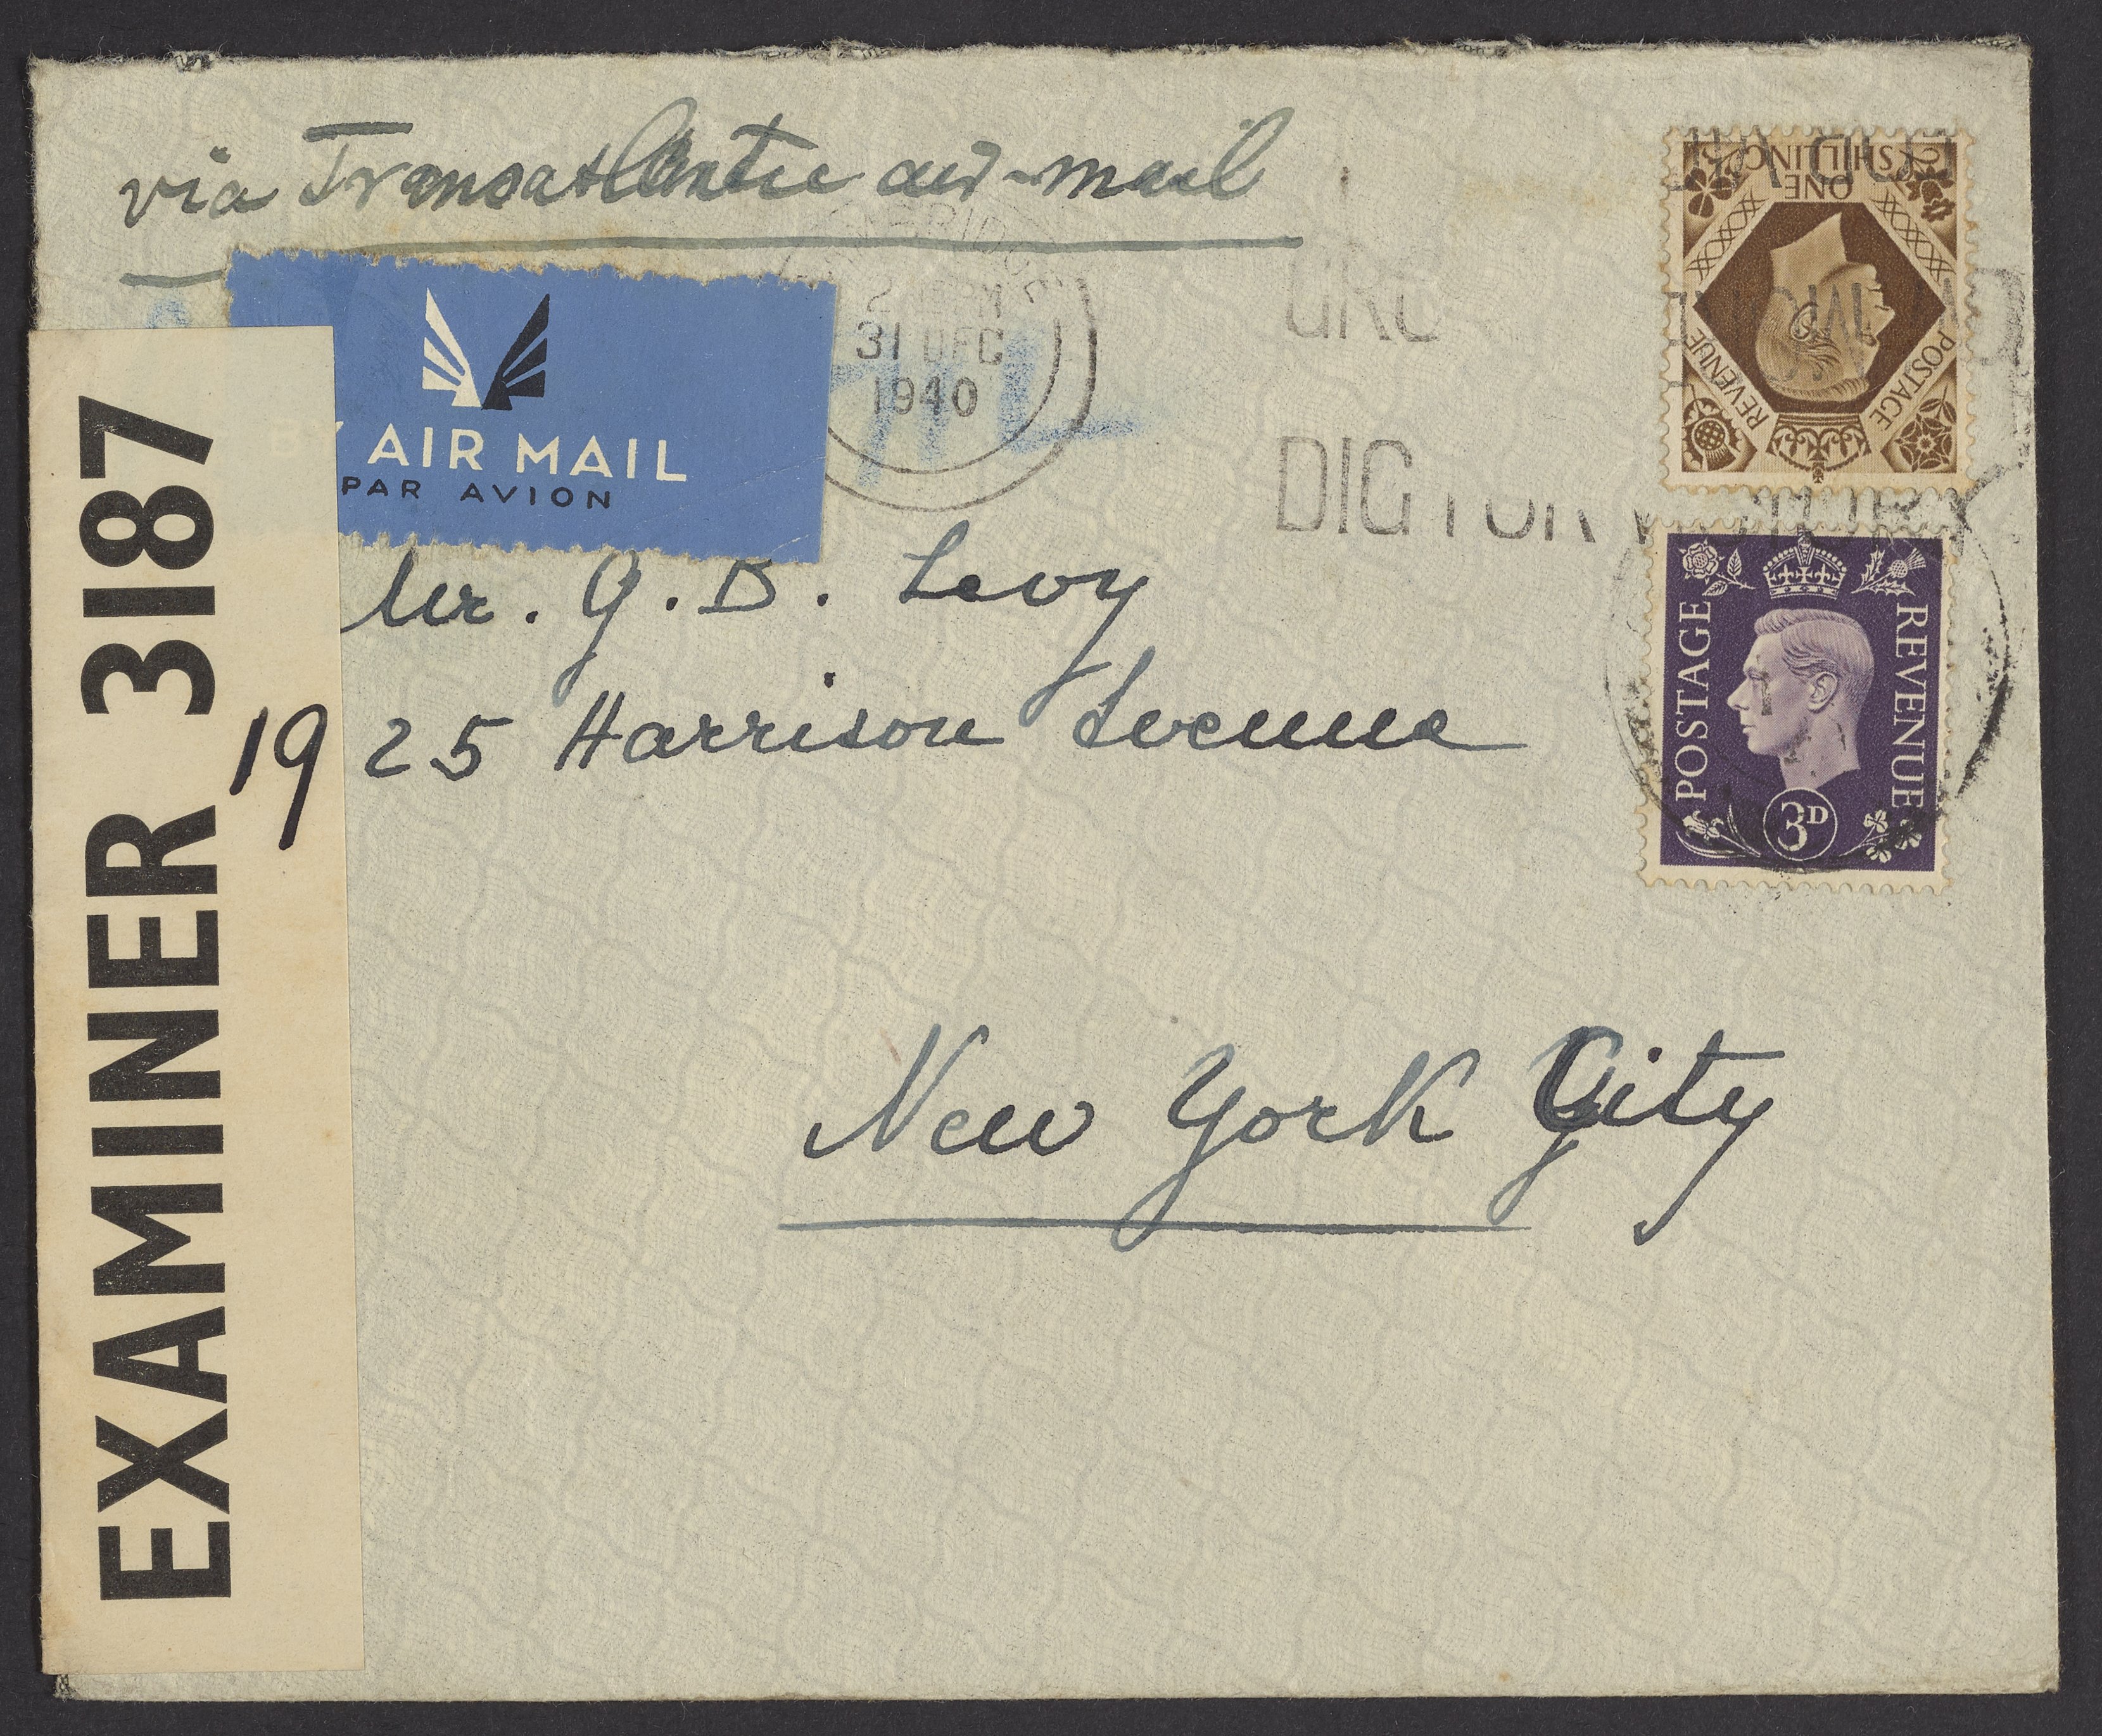 via Transatlantic air-mail
BY AIR MAIL
PAR AVION
31 DEC
1940
DIG FOR VICTORY
ONE
SHILLING
POSTAGE
REVENUE
POSTAGE
REVENUE
3D
EXAMINER 3187
Mr. G. B. Levy
1925 Harrison Avenue
New York City